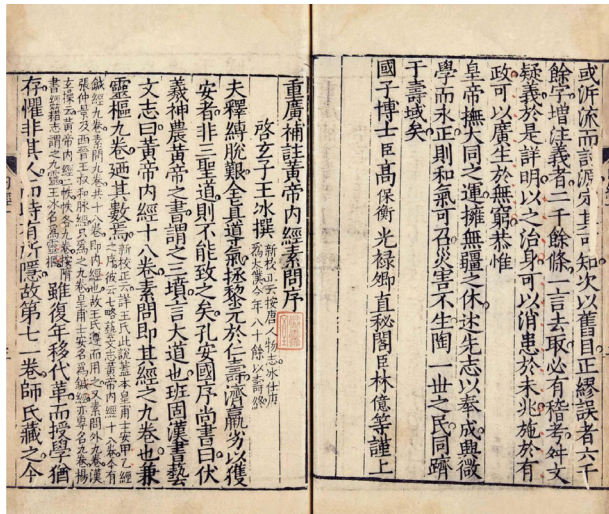 或泝流而討源定其可知次以舊目正繆誤者六千
餘字增注義者二千餘條一言去取必有稽考舛文
疑義於是詳明以之治身可以消患於未兆施於有
政可以廣生於無窮恭惟
皇帝撫大同之運擁無疆之休述先志以奉成興微
學而永正則和氣可召災害不生陶一世之民同躋
于壽域矣
國子博士臣高保衡 光祿卿直秘閣臣林億等謹上
重廣補註黃帝內經素問序
啓玄子王冰撰
新校正云按唐人物志冰仕唐
爲太僕令年八十餘以壽終
夫釋縛脫艱全真導氣拯黎元於仁壽濟羸劣以獲
安者非三聖道則不能致之矣孔安國序尚書曰伏
羲神農黃帝之書謂之三墳言大道也班固漢書藝
文志曰黃帝內經十八卷素問即其經之九卷也兼
靈樞九卷廼其數焉
新校正云詳王氏此說蓋本皇甫士安甲乙經
之序彼云七略藝文志黃帝內經十八卷今有
鍼經九卷素問九卷共十八卷即內經也故王氏遵而用之又素問外九卷漢
張仲景及西晉王叔和脉經只爲之九卷皇甫士安名爲鍼經亦專名九卷楊
玄操云黃帝內經二帙帙各九卷按隋
書經籍志謂之九靈王冰名爲靈樞
雖復年移代革而授學猶
存懼非其人而時有所隱故第七一卷師氏藏之今